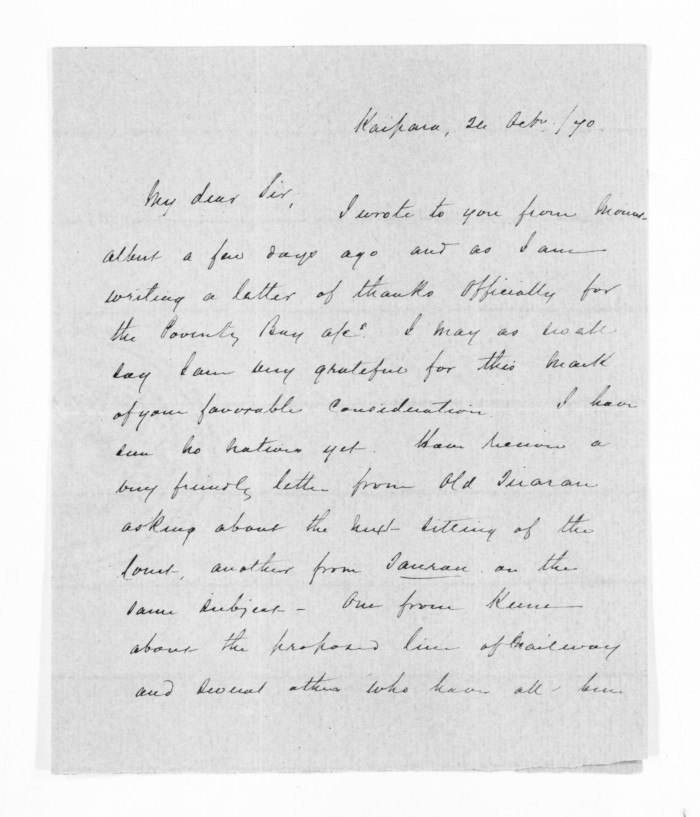 Kaipara, 24 Octr /70
My dear Sir,
I wrote to you from Mount
albert a few days ago and as I am
writing a letter of thanks Officially for
the Poverty Bay a/c. I may as well
say I am very grateful for this mark
of your favorable Consideration. I have
seen no natives yet. Have received a
very friendly letter from Old
asking about the next sitting of the
Court, another from on the
same subject - One from Keene
about the proposed line of Railway
and several others who have all been